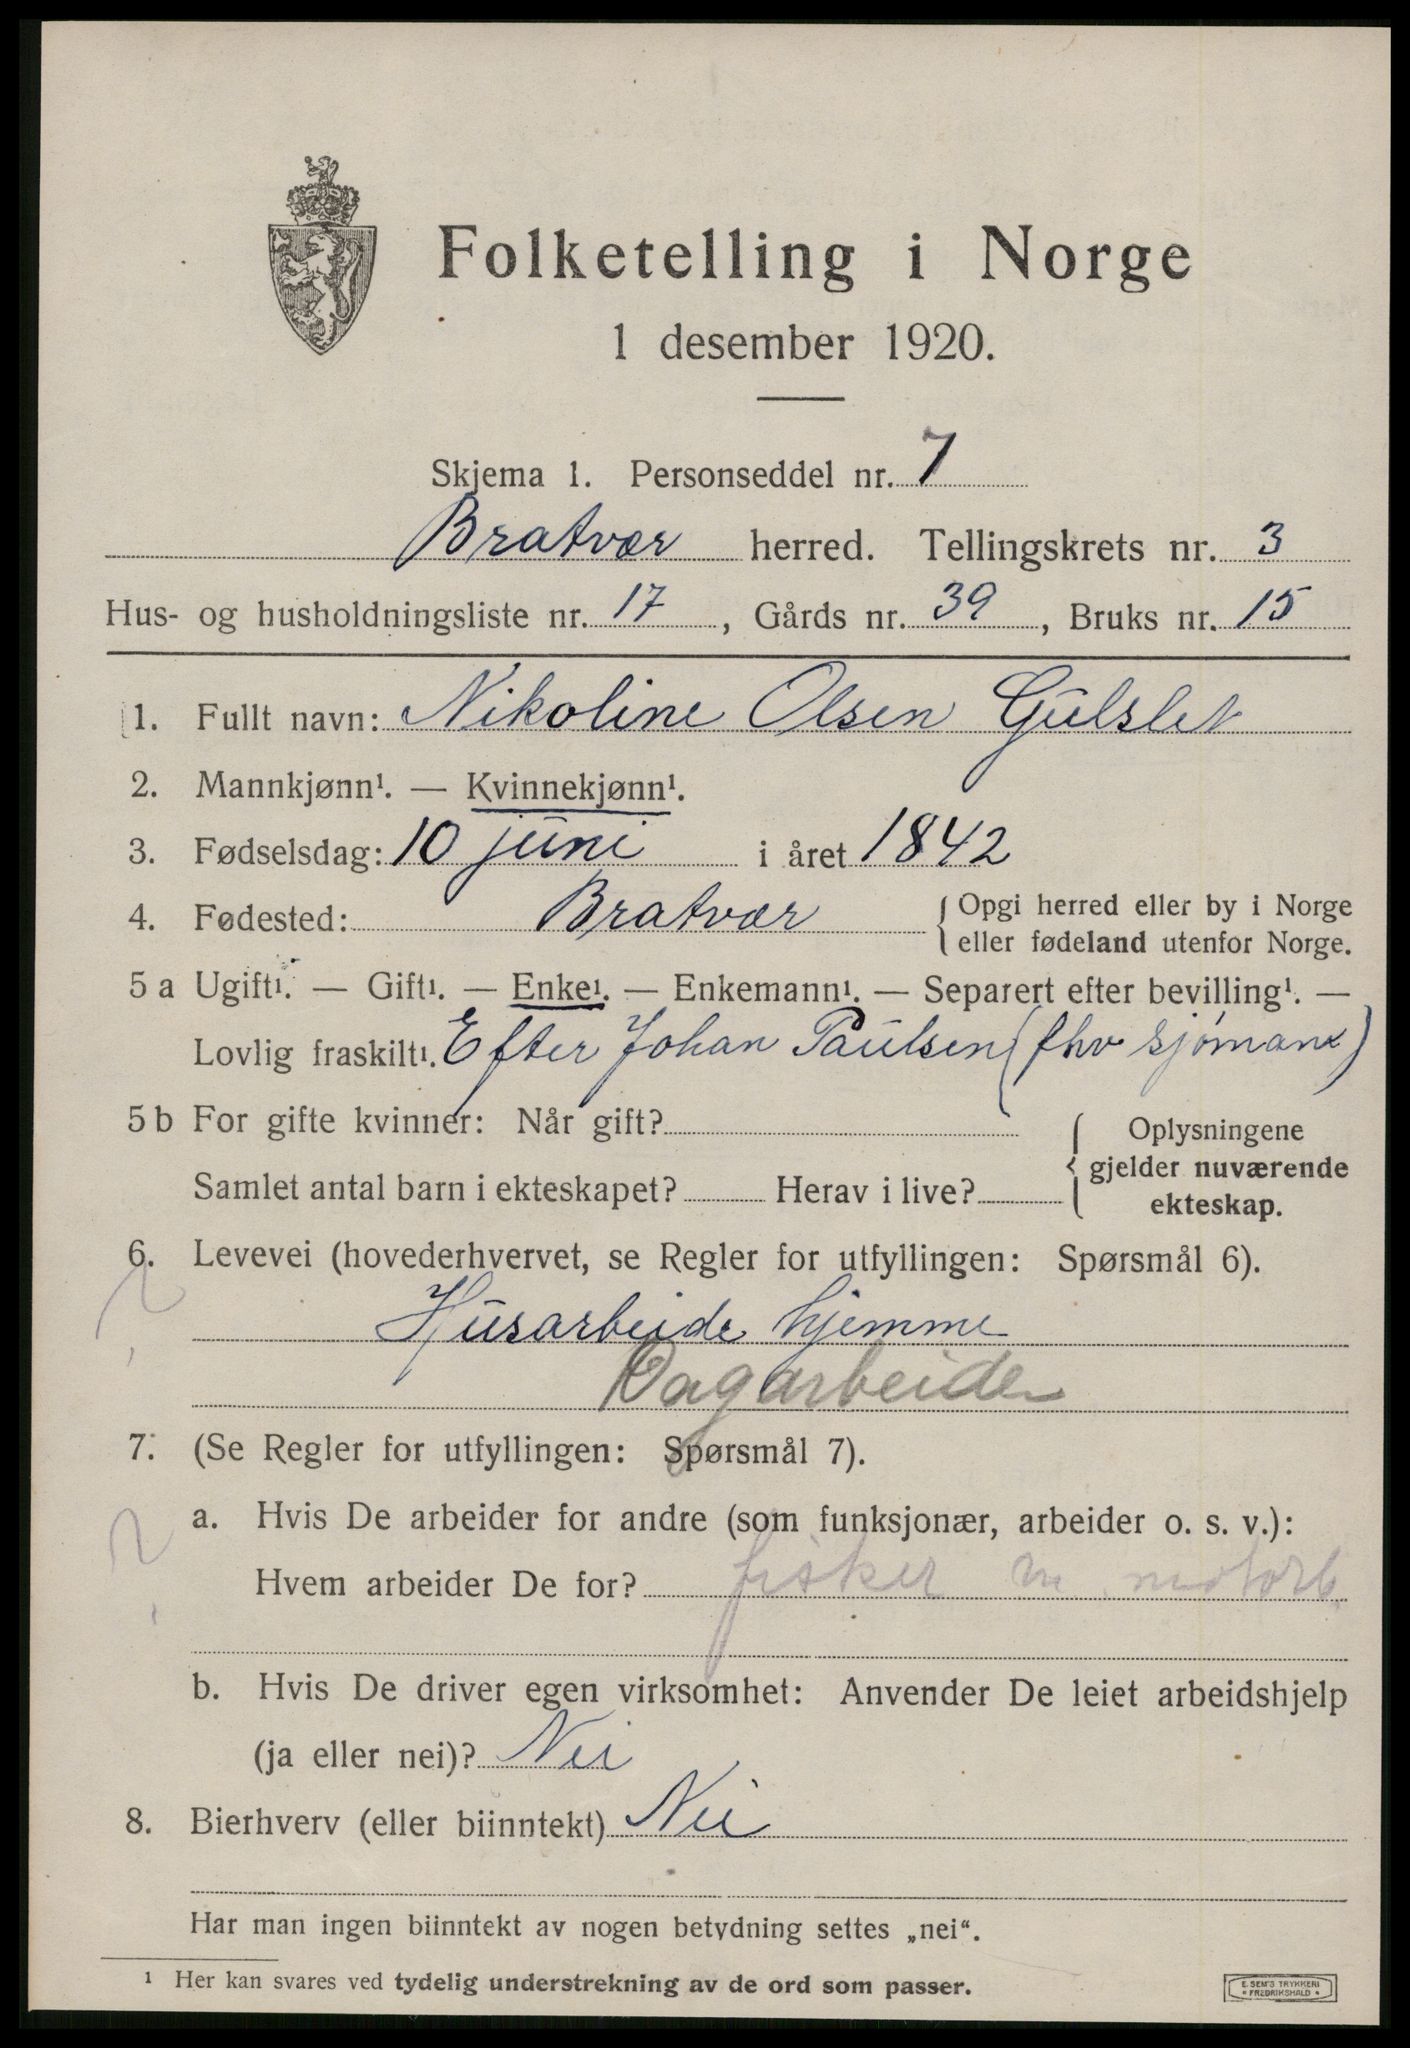 Folketelling i Norge
1 desember 1920.
Skjema 1. Personseddel nr. 7
Bratvær herred. Tellingskrets nr. 3
Hus- og husholdningsliste nr. 17, Gårds nr. 39, Bruks nr. 15
1. Fullt navn: Nikoline Olsen Gulslet
2. Mannkjønn¹. — Kvinnekjønn¹.
3. Fødselsdag: 10 juni i året 1842
4. Fødested: Bratvær { Opgi herred eller by i Norge
eller fødeland utenfor Norge.
5 a Ugift¹. — Gift¹. — Enke¹. — Enkemann¹. — Separert efter bevilling¹. —
Lovlig fraskilt¹. Efter Johan Paulsen (fhv sjømann)
5 b For gifte kvinner: Når gift?
Samlet antal barn i ekteskapet? Herav i live?
{ Oplysningene
gjelder nuværende
ekteskap.
6. Levevei (hovederhvervet, se Regler for utfyllingen: Spørsmål 6).
Husarbeide hjemme
Dagarbeider
7. (Se Regler for utfyllingen: Spørsmål 7).
a. Hvis De arbeider for andre (som funksjonær, arbeider o. s. v.):
Hvem arbeider De for? fisker m motorb.
b. Hvis De driver egen virksomhet: Anvender De leiet arbeidshjelp
(ja eller nei)? Nei
8. Bierhverv (eller biinntekt) Nei
Har man ingen biinntekt av nogen betydning settes „nei“.
¹ Her kan svares ved tydelig understrekning av de ord som passer.
E. SEM'S TRYKKERI
* FREDRIKSHALD *